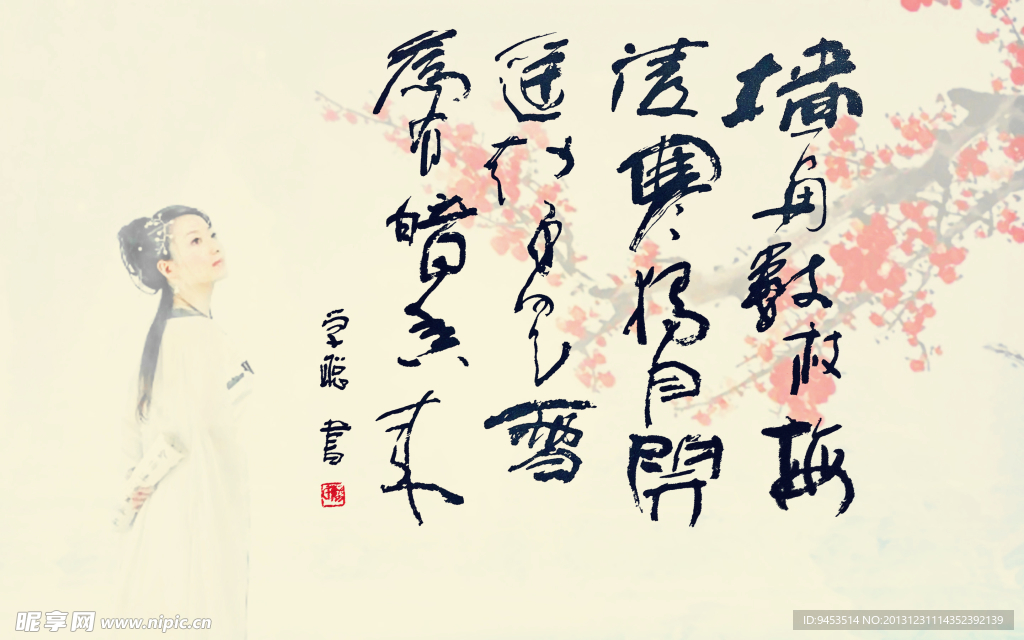 墙角数枝梅
凌寒独自開
遥知不是雪
為有暗香来
学聪书
昵享网 www.nipic.cn
ID:9453514 NO:20131231114352392139